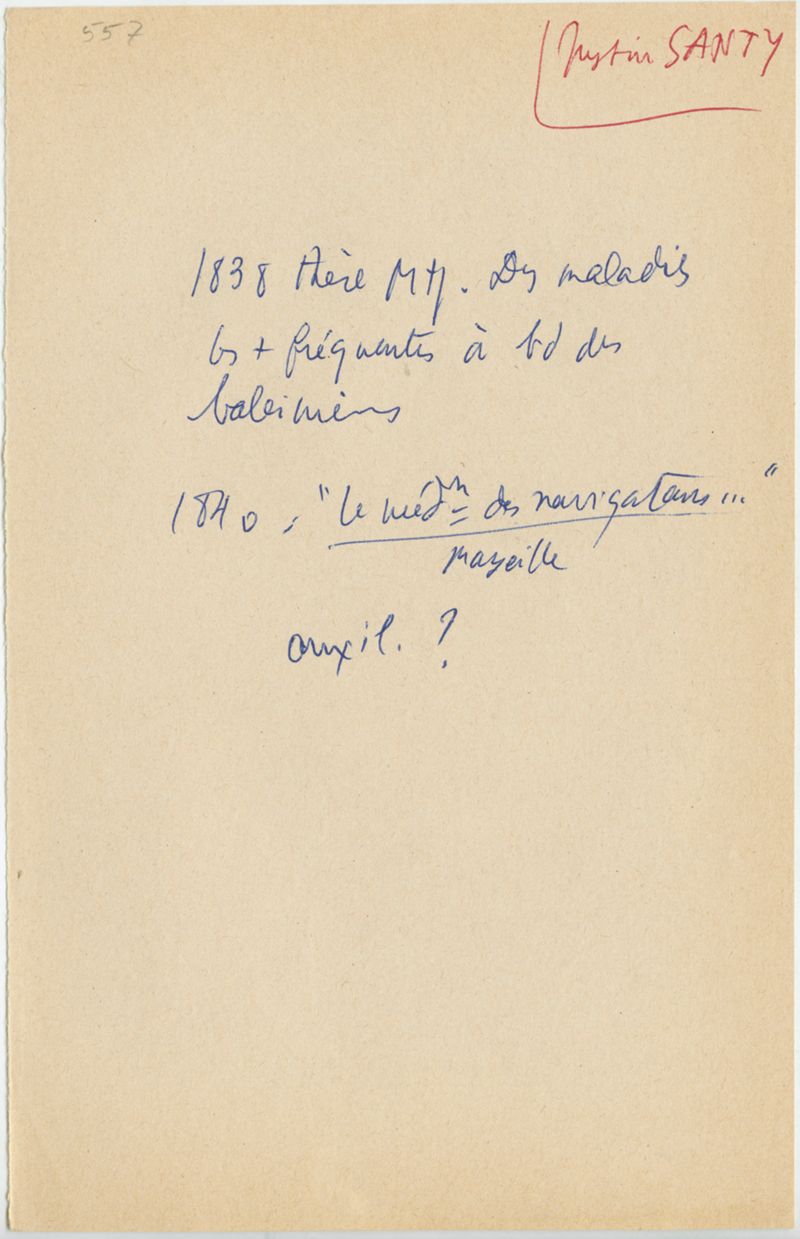 557
Justin SANTY
1838 thèse MTP. Des maladies
les + fréquentes à bd des
baleiniers
1840, "Le médn des navigateurs ..."
Marseille
auxil. ?